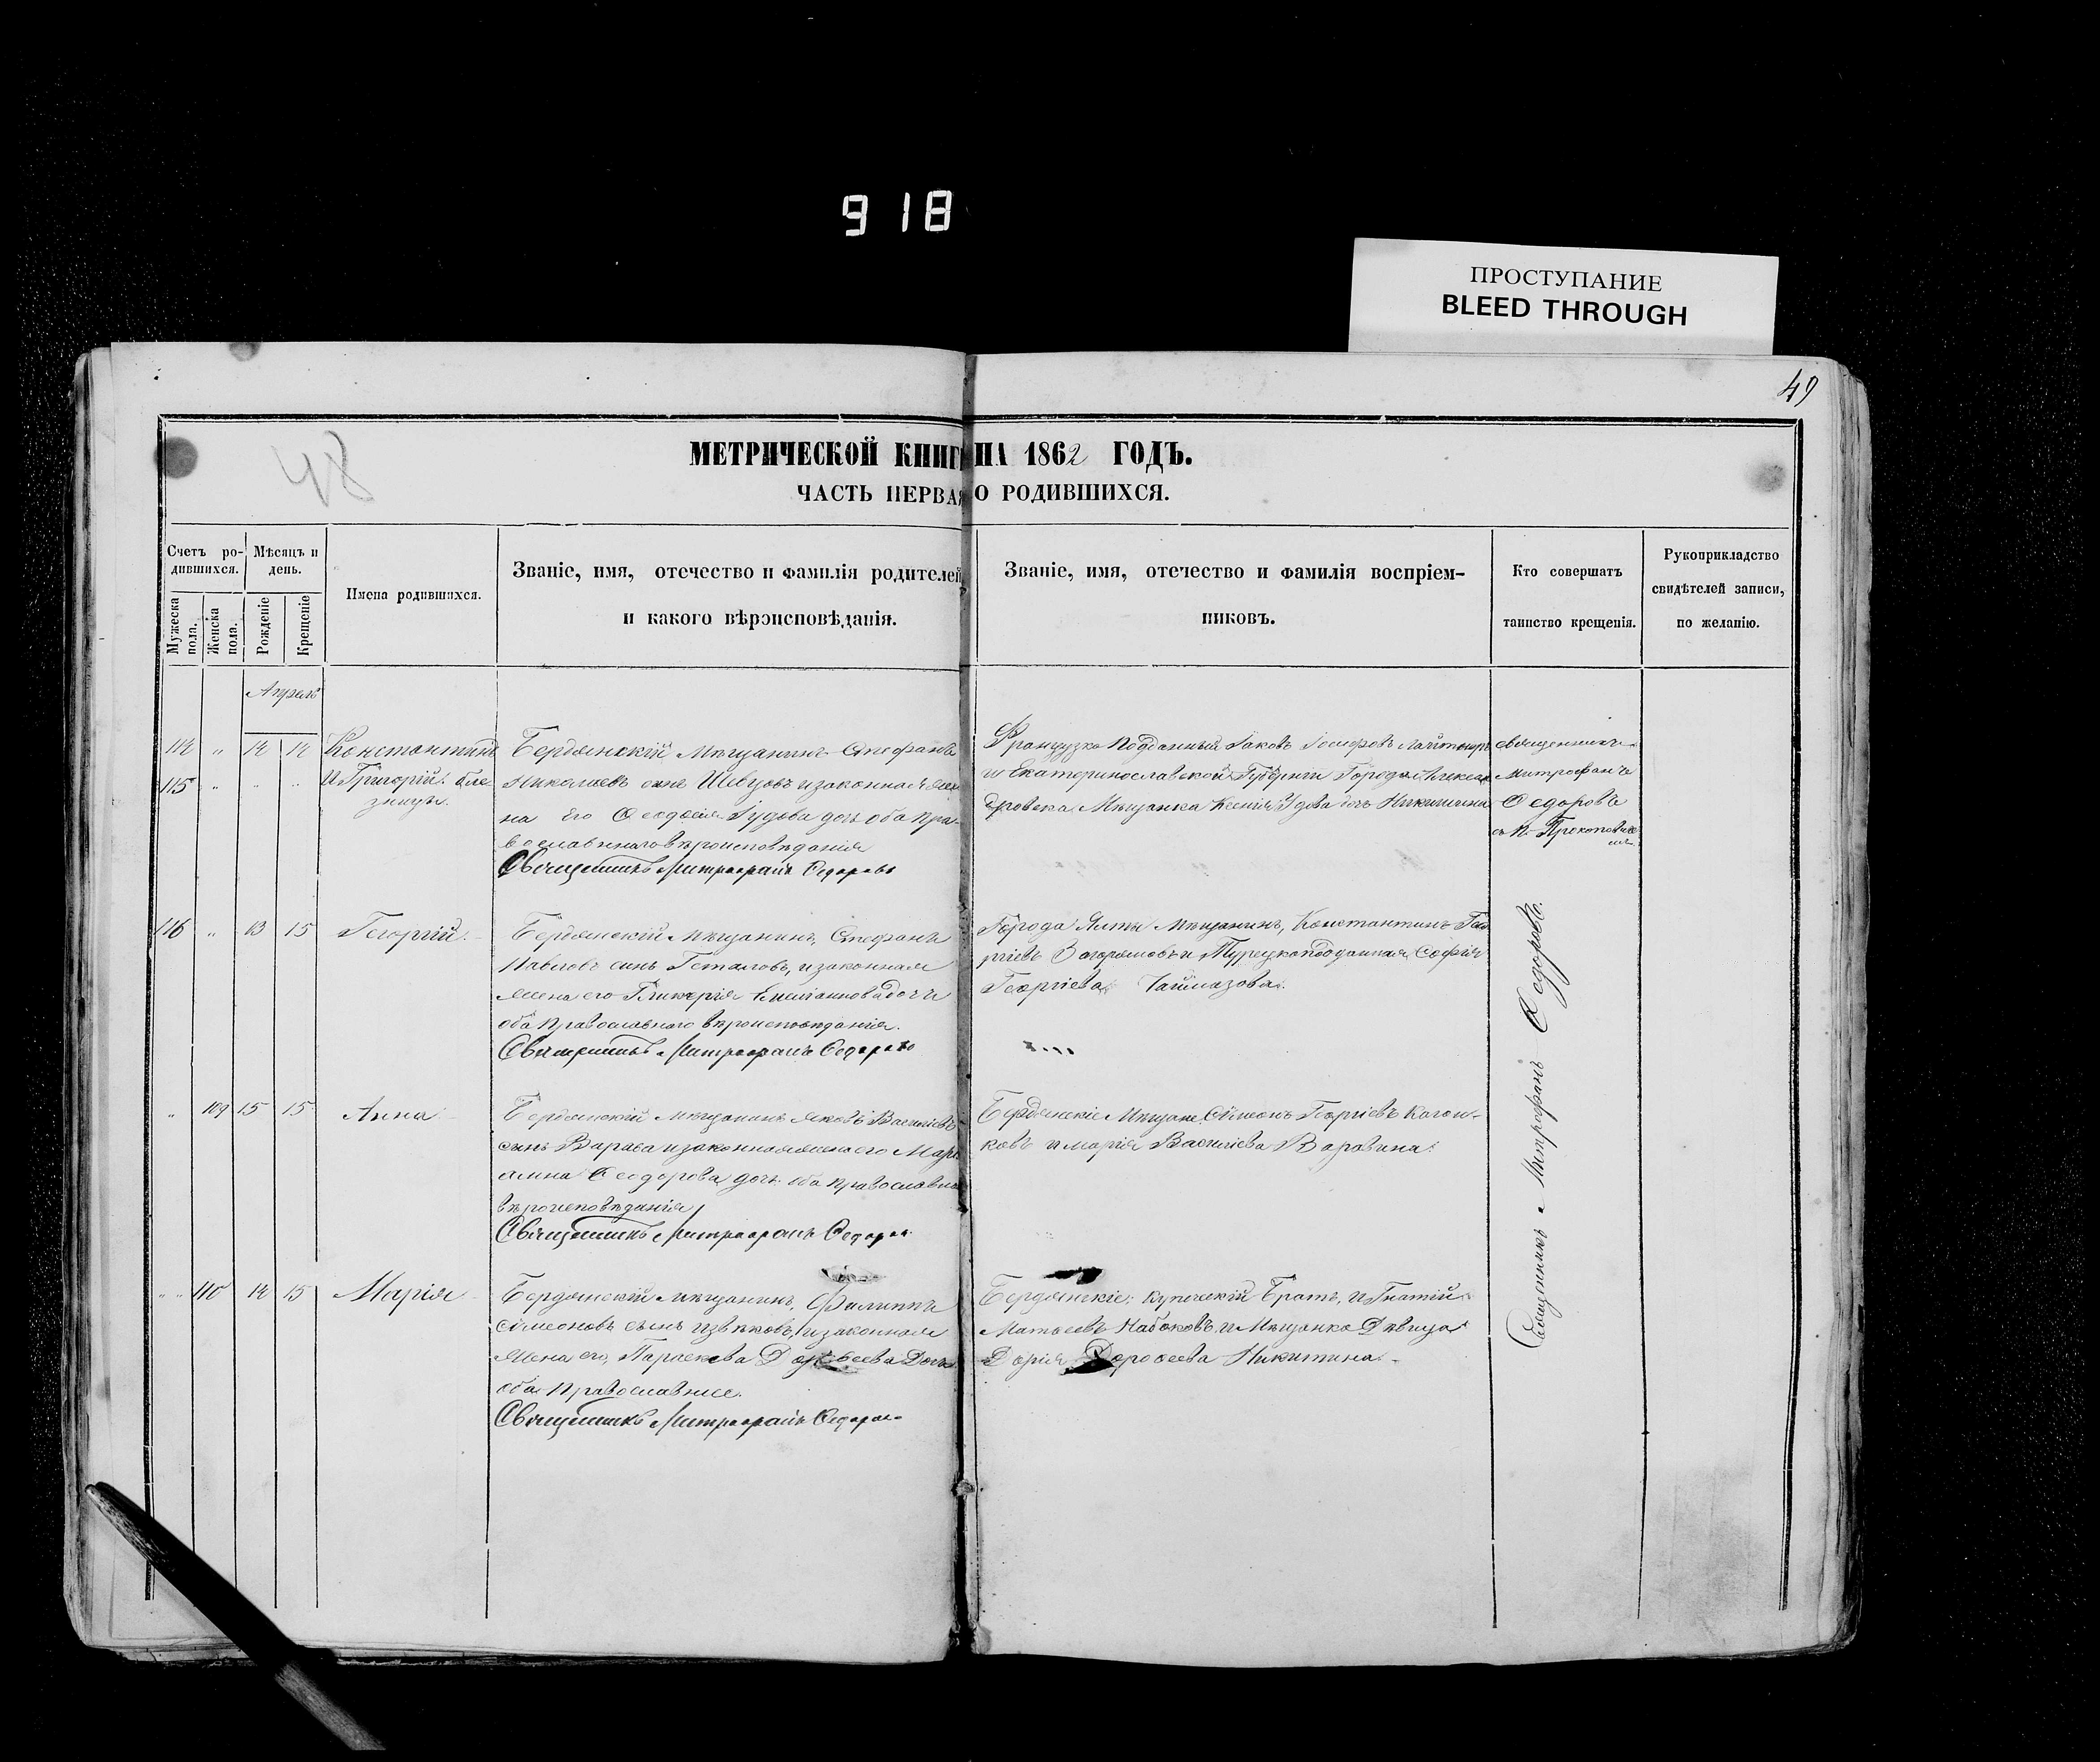 918
ПРОСТУПАНИЕ
BLEED THROUGH
49
48
МЕТРИЧЕСКОЙ КНИГИ НА 1862 ГОДЪ.
ЧАСТЬ ПЕРВАЯ О РОДИВШИХСЯ.
Счетъ ро-
дившихся.
Мужеска пола.
Женска пола.
Мѣсяцъ и
день.
Рожденіе
Крещеніе
Имена родившихся.
Званіе, имя, отечество и фамилія родителей,
и какого вѣроисповѣданія.
Званіе, имя, отечество и фамилія воспріем-
никовъ.
Кто совершатъ
таинство крещенія.
Рукоприкладство
свидѣтелей записи,
по желанію.
Апрель
114 " 14 14 Константинъ
115 " " " и Григорій. бле
знецы.
Бердянскій Мѣщанинъ Стефанъ
Николаевъ сынъ Шевцовъ и законная же
на его Феодосія Іудова дочь оба пра
вославнаго вѣроисповѣданія
Священникъ Митрофанъ Федоровъ
Французко Подданный Іаковъ Іосифовъ
и Екатеринославской Губерніи Города Алекса
дровска Мѣщанка Ксенія дочь Никитина
священникъ
Митрофанъ
Федоровъ
съ П. Прокопович
емъ
116 " 13 15 Георгій.
Бердянскій мѣщанинъ, Стефанъ
Павловъ сынъ Геталовъ, и законная
жена его Гликерія Емиліанова дочь
оба православнаго вѣроисповѣданія.
Священникъ Митрофанъ Федоровъ
Города Ялты мѣщанинъ, Константинъ Гео
ргіевъ и Турецкоподданная Софія
Георгіева
" 109 15 15 Анна
Бердянскій мѣщанинъ Яковъ Василіевъ
сынъ Варава и законная жена его Марі
амна Феодорова дочь оба православна
вѣроисповѣданія
Священникъ Митрофанъ Федоров
Бердянскіе Мѣщане Сѵмеонъ Георгіевъ
ковъ и марія Василіева Варавина.
" " 110 14 15 Марія
Бердянскій мѣщанинъ, Филиппъ
Сімеоновъ сынъ Извѣковъ, и законная
жена его, Параскева Дорофеева Дочь
оба православные.
Священникъ Митрофанъ Федоров
Бердянскіе: купеческій Братъ, Игнатій
Матвеевъ Набоковъ и Мѣщанка Дѣвица
Дарія Дорофеева Никитина.
Священникъ Митрофанъ Федоровъ.